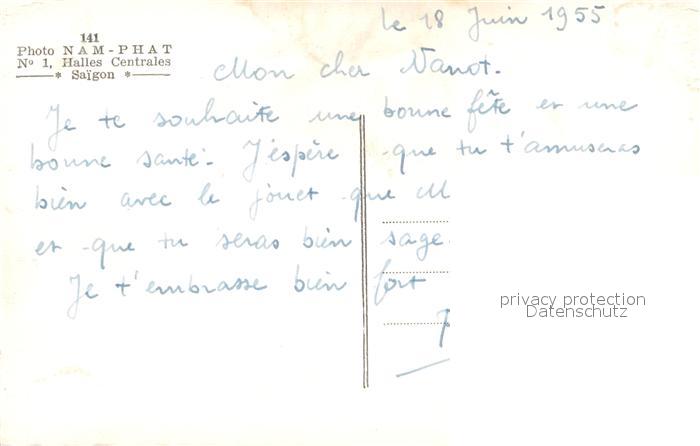 le 18 Juin 1955
141
Photo NAM-PHAT
Nº 1, Halles Centrales
* Saïgon *
Mon cher Nanot.
Je te souhaite une bonne fête et une
bonne santé. J'éspère que tu t'amuseras
bien avec le jouet que M
et que tu seras bien sage.
Je t'embrasse bien fort
privacy protection
Datenschutz